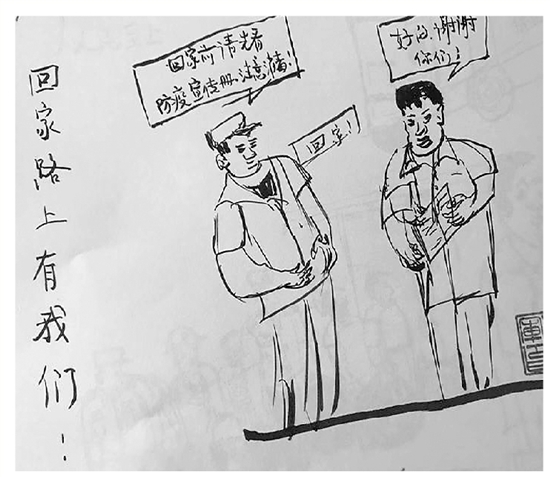 回家路上有我们！
回家前请先看
防疫宣传册，注意
回家！
好的，谢谢
你们！